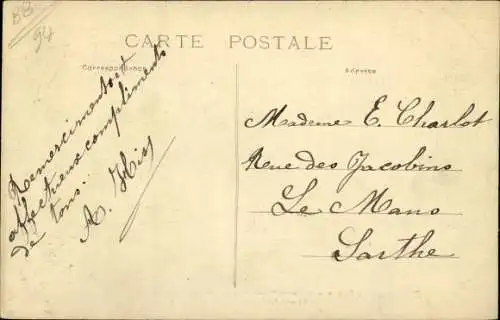 88
94
CARTE POSTALE
Correspondance
Adresse
Remerciments et
affectueux compliments
de tous.
A. Hiss
Madame E. Charlot
Rue des Jacobins
Le Mans
Sarthe